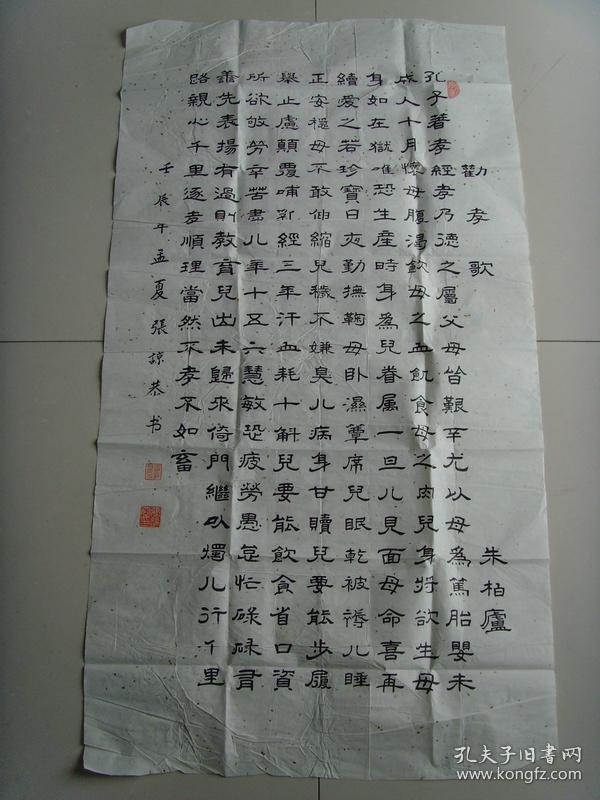 勸孝歌 朱柏廬
孔子著孝經孝乃德之屬父母皆艱辛尤以母為篤胎嬰未
成人十月懷母腹渴飲母之血飢食母之肉兒身將欲生母
身如在獄唯恐生產時身為兒眷屬一旦儿見面母命喜再
續愛之若珍寶日夜勤撫鞠母卧濕簟席兒眠乾被褥儿睡
正安穩母不敢伸縮兒穢不嫌臭儿病身甘贖兒要能步履
舉止慮顛覆哺乳經三年汗血耗十斛兒要能飲食省口資
所欲劬勞辛苦盡儿年十五六慧敏恐疲勞愚怠忙碌碌有
善先表揚有過則教育兒出未歸來倚門繼以燭儿行千里
路親心千里逐孝順理當然不孝不如畜
壬辰年孟夏張諒恭书
孔夫子旧書网
www.kongfz.com